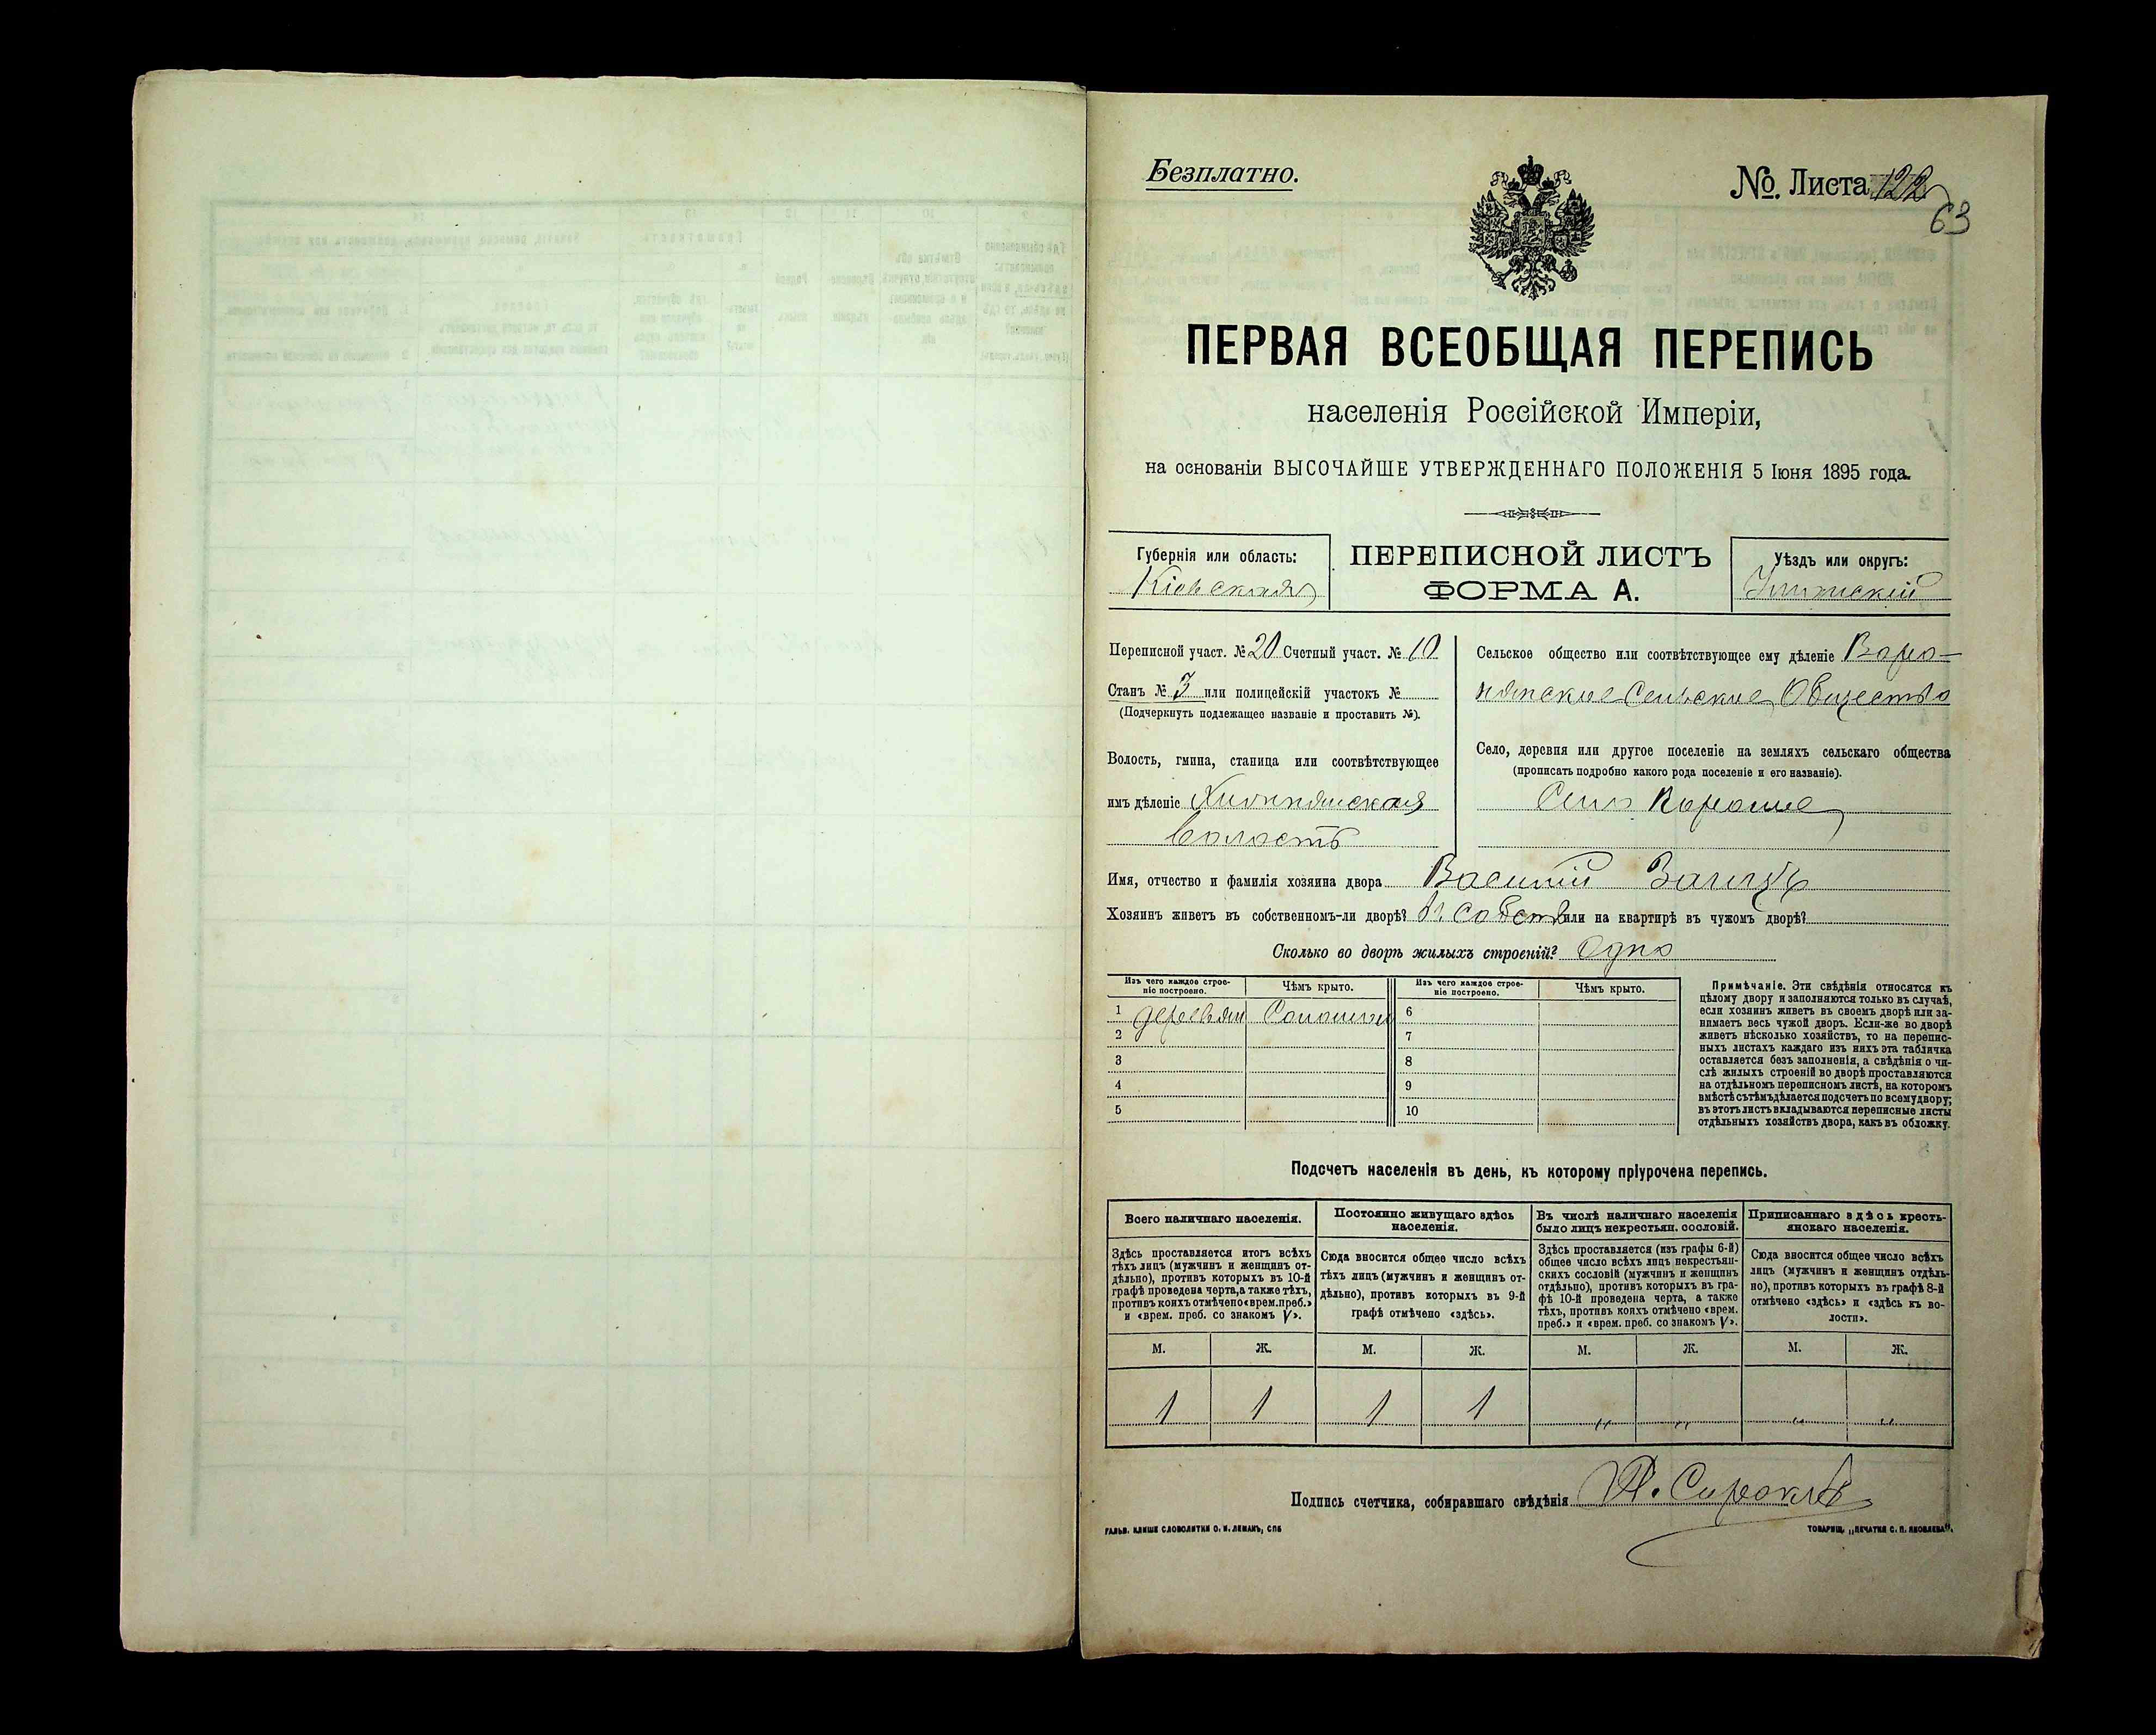 Безплатно.
№. Листа 122
63
ПЕРВАЯ ВСЕОБЩАЯ ПЕРЕПИСЬ
населенія Россійской Имперіи,
на основаніи ВЫСОЧАЙШЕ УТВЕРЖДЕННАГО ПОЛОЖЕНІЯ 5 Іюня 1895 года.
Губернія или область:
Кіевская
ПЕРЕПИСНОЙ ЛИСТЪ
ФОРМА А.
Уѣздъ или округъ:
Переписной участ. № 20 Счетный участ. № 10
Станъ № 3 или полицейскій участокъ №
(Подчеркнуть подлежащее названіе и проставить №).
Волость, гмина, станица или соотвѣтствующее
имъ дѣленіе
волость
Сельское общество или соотвѣтствующее ему дѣленіе
Сельское Общество
Село, деревня или другое поселеніе на земляхъ сельскаго общества
(прописать подробно какого рода поселеніе и его названіе).
Село
Имя, отчество и фамилія хозяина двора Василій
Хозяинъ живетъ въ собственномъ-ли дворѣ? въ собств или на квартирѣ въ чужомъ дворѣ?
Сколько во дворѣ жилыхъ строеній? Одно
Изъ чего каждое строе-
ніе построено.
Чѣмъ крыто.
Изъ чего каждое строе-
ніе построено.
Чѣмъ крыто.
1 деревян Соломою 6
2 7
3 8
4 9
5 10
Примѣчаніе. Эти свѣдѣнія относятся къ
цѣлому двору и заполняются только въ случаѣ,
если хозяинъ живетъ въ своемъ дворѣ или за-
нимаетъ весь чужой дворъ. Если-же во дворѣ
живетъ нѣсколько хозяйствъ, то на перепис-
ныхъ листахъ каждаго изъ нихъ эта табличка
оставляется безъ заполненія, а свѣдѣнія о чи-
слѣ жилыхъ строеній во дворѣ проставляются
на отдѣльномъ переписномъ листѣ, на которомъ
вмѣстѣ съ тѣмъ дѣлается подсчетъ по всему двору;
въ этотъ листъ вкладываются переписные листы
отдѣльныхъ хозяйствъ двора, какъ въ обложку.
Подсчетъ населенія въ день, къ которому пріурочена перепись.
Всего наличнаго населенія.
Здѣсь проставляется итогъ всѣхъ
тѣхъ лицъ (мужчинъ и женщинъ от-
дѣльно), противъ которыхъ въ 10-й
графѣ проведена черта, а также тѣхъ,
противъ коихъ отмѣчено «врем. преб.»
и «врем. преб. со знакомъ V».
Постоянно живущаго здѣсь
населенія.
Сюда вносится общее число всѣхъ
тѣхъ лицъ (мужчинъ и женщинъ от-
дѣльно), противъ которыхъ въ 9-й
графѣ отмѣчено «здѣсь».
Въ числѣ наличнаго населенія
было лицъ некрестьян. сословій.
Здѣсь проставляется (изъ графы 6-й)
общее число всѣхъ лицъ некрестьян-
скихъ сословій (мужчинъ и женщинъ
отдѣльно), противъ которыхъ въ гра-
фѣ 10-й проведена черта, а также
тѣхъ, противъ коихъ отмѣчено «врем.
преб.» и «врем. преб. со знакомъ V».
Приписаннаго здѣсь кресть-
янскаго населенія.
Сюда вносится общее число всѣхъ
лицъ (мужчинъ и женщинъ отдѣль-
но), противъ которыхъ въ графѣ 8-й
отмѣчено «здѣсь» и «здѣсь къ во-
лости».
М. Ж. М. Ж. М. Ж. М. Ж.
1 1 1 1 " " " "
Подпись счетчика, собиравшаго свѣдѣнія
ГАЛЬВ. КЛИШЕ СЛОВОЛИТНИ О. И. ЛЕМАНЪ, СПБ
ТОВАРИЩ. „ПЕЧАТНЯ С. П. ЯКОВЛЕВА".